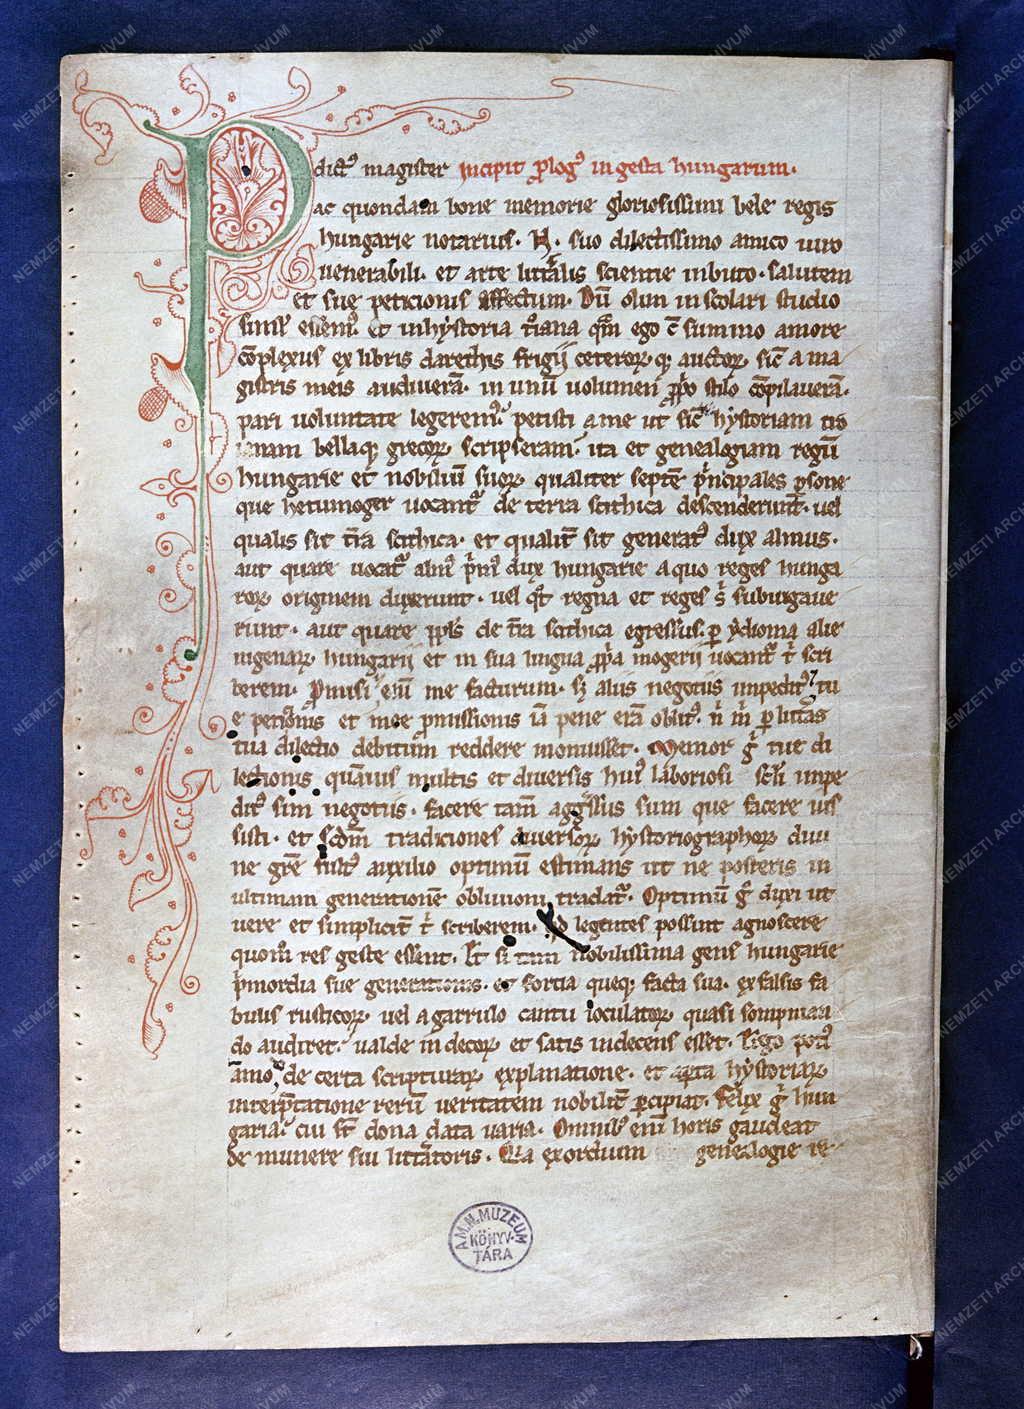 P dict᷒ magister Incipit ꝓlog᷒ in gesta hungarum.
ac quondam bone memorie gloriosissimi bele regis
hungarie notarius. N. suo dilectissimo amico uiro
uenerabili. et arte litt̃alis scientie inbuto. salutem
et sue peticionis affectum. Dũ olim in scolari studio
simul essem᷒. et in hystoria t̃iana qm̃ ego cũ summo amore
cõplexus ex libris darethis frigii ceterorꝫ qꝫ auctorꝫ. sic̃ a ma
gistris meis audiuerã. in unũ uolumen ꝓpo stilo cõpilauerã.
pari uoluntate legerem᷒. petisti a me ut sic̃ hystoriam tro
ianam bellaqꝫ grecorꝫ scripseram. ita et genealogiam regũ
hungarie et nobiliũ suorꝫ. qualiter septẽ p̃ncipales ꝑsone
que hetumoger uocant̃ de terra scithica descenderunt̃. uel
qualis sit t̃ra scithica. et qualit̃ sit generat᷒ dux almus.
aut quare uocat̃ alm᷒ p̃m᷒ dux hungarie a quo reges hunga
rorꝫ originem duxerunt. uel qͦt regna et reges s̃ subiugaue
runt. aut quare ppl̃s de t̃ra scithica egressus. ꝑ ydioma alie
nigenarꝫ hungarii et in sua lingua ꝓp̃a mogerii uocant̃ t̃ scri
berem. Promisi eñi me facturum. sꝫ aliis negotiis impedit᷒. tu
e petit̃onis et mee ꝓmissionis iã pene erã oblit᷒. ñ m̃ ꝑ litt̃as
tua dilectio debitum reddere monuisset. Memor g̃ tue di
lectionis quãuis multis et diuersis hui᷒ laboriosi scłi impe
dit᷒ sim negotiis. facere tam̃ aggressus sum que facere ius
sisti. et scdm̃ tradiciones diuersorꝫ hystoriographorꝫ diui
ne grẽ fult᷒ auxilio optimũ estimans ut ne posteris in
ultimam generationẽ obliuioni tradat̃. Optimũ g̃ duxi ut
uere et simplicit̃ t̃ scriberem. qd legentes possint agnoscere
quom̃ res geste essent. Et si tam nobilissima gens hungarie
p̃mordia sue generationis. et fortia queqꝫ facta sua. ex falsis fa
bulis rusticorꝫ. uel a garrulo cantu ioculatorꝫ quasi sompnian
do audiret. ualde indecorꝫ et satis indecens esset. Ergo poti᷒
ãmo, de certa scripturarꝫ explanatione. et aꝑta hystoriarꝫ
interp̃tatione rerũ ueritatem nobilit̃ ꝑcipiat. Felix g̃ hun
garia. cui st̃ dona data uaria. Omnib᷒ eñi horis gaudeat
de munere sui litt̃atoris. Q̃a exordium genealogie re-
A.M.N.MUZEUM
KÖNYV-
TÁRA